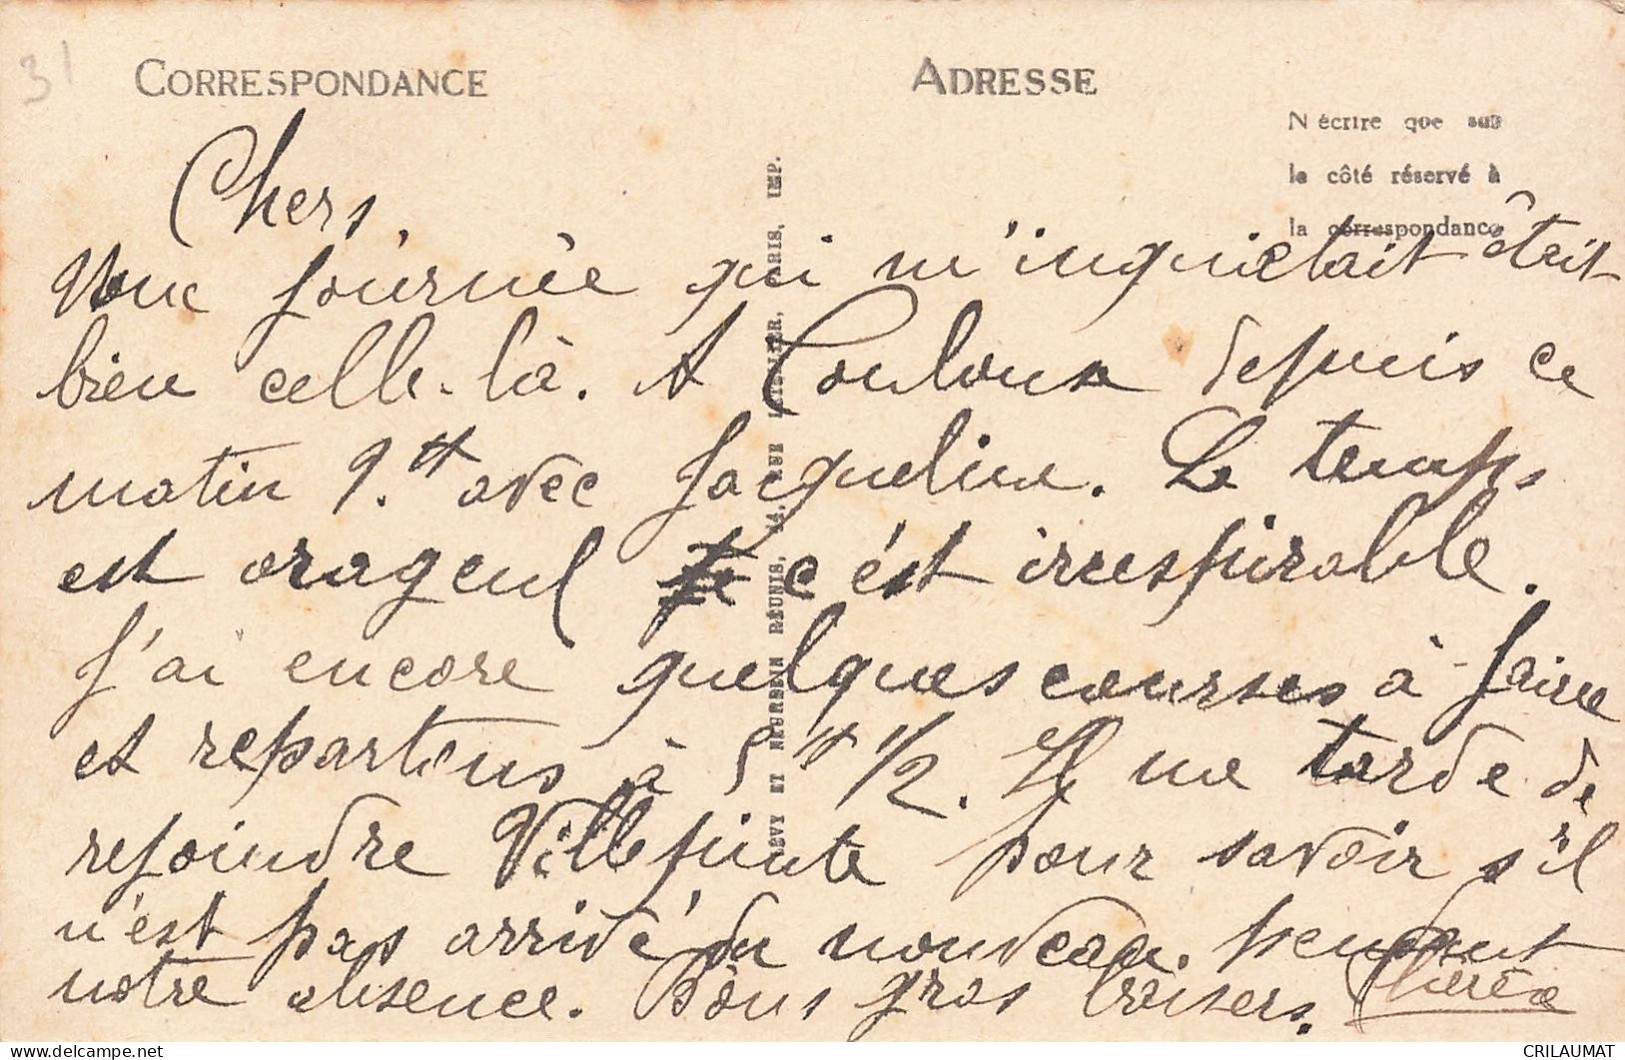 31
CORRESPONDANCE
ADRESSE
N écrire que sur
le côté réservé à
la correspondance
LEVY ET NEURDEIN RÉUNIS, 44, RUE LETELLIER, PARIS, IMP.
Chers,
Une journée qui m'inquiétait était
bien celle-là. A Toulouse depuis ce
matin 9.H avec Jacqueline. Le temps
est orageux c'est irrespirable.
J'ai encore quelques courses à faire
et repartons à 5H 1/2. Il me tarde de
rejoindre Villepinte pour savoir s'il
n'est pas arrivé du nouveau pendant
notre absence. Bons gros baisers.
CRILAUMAT